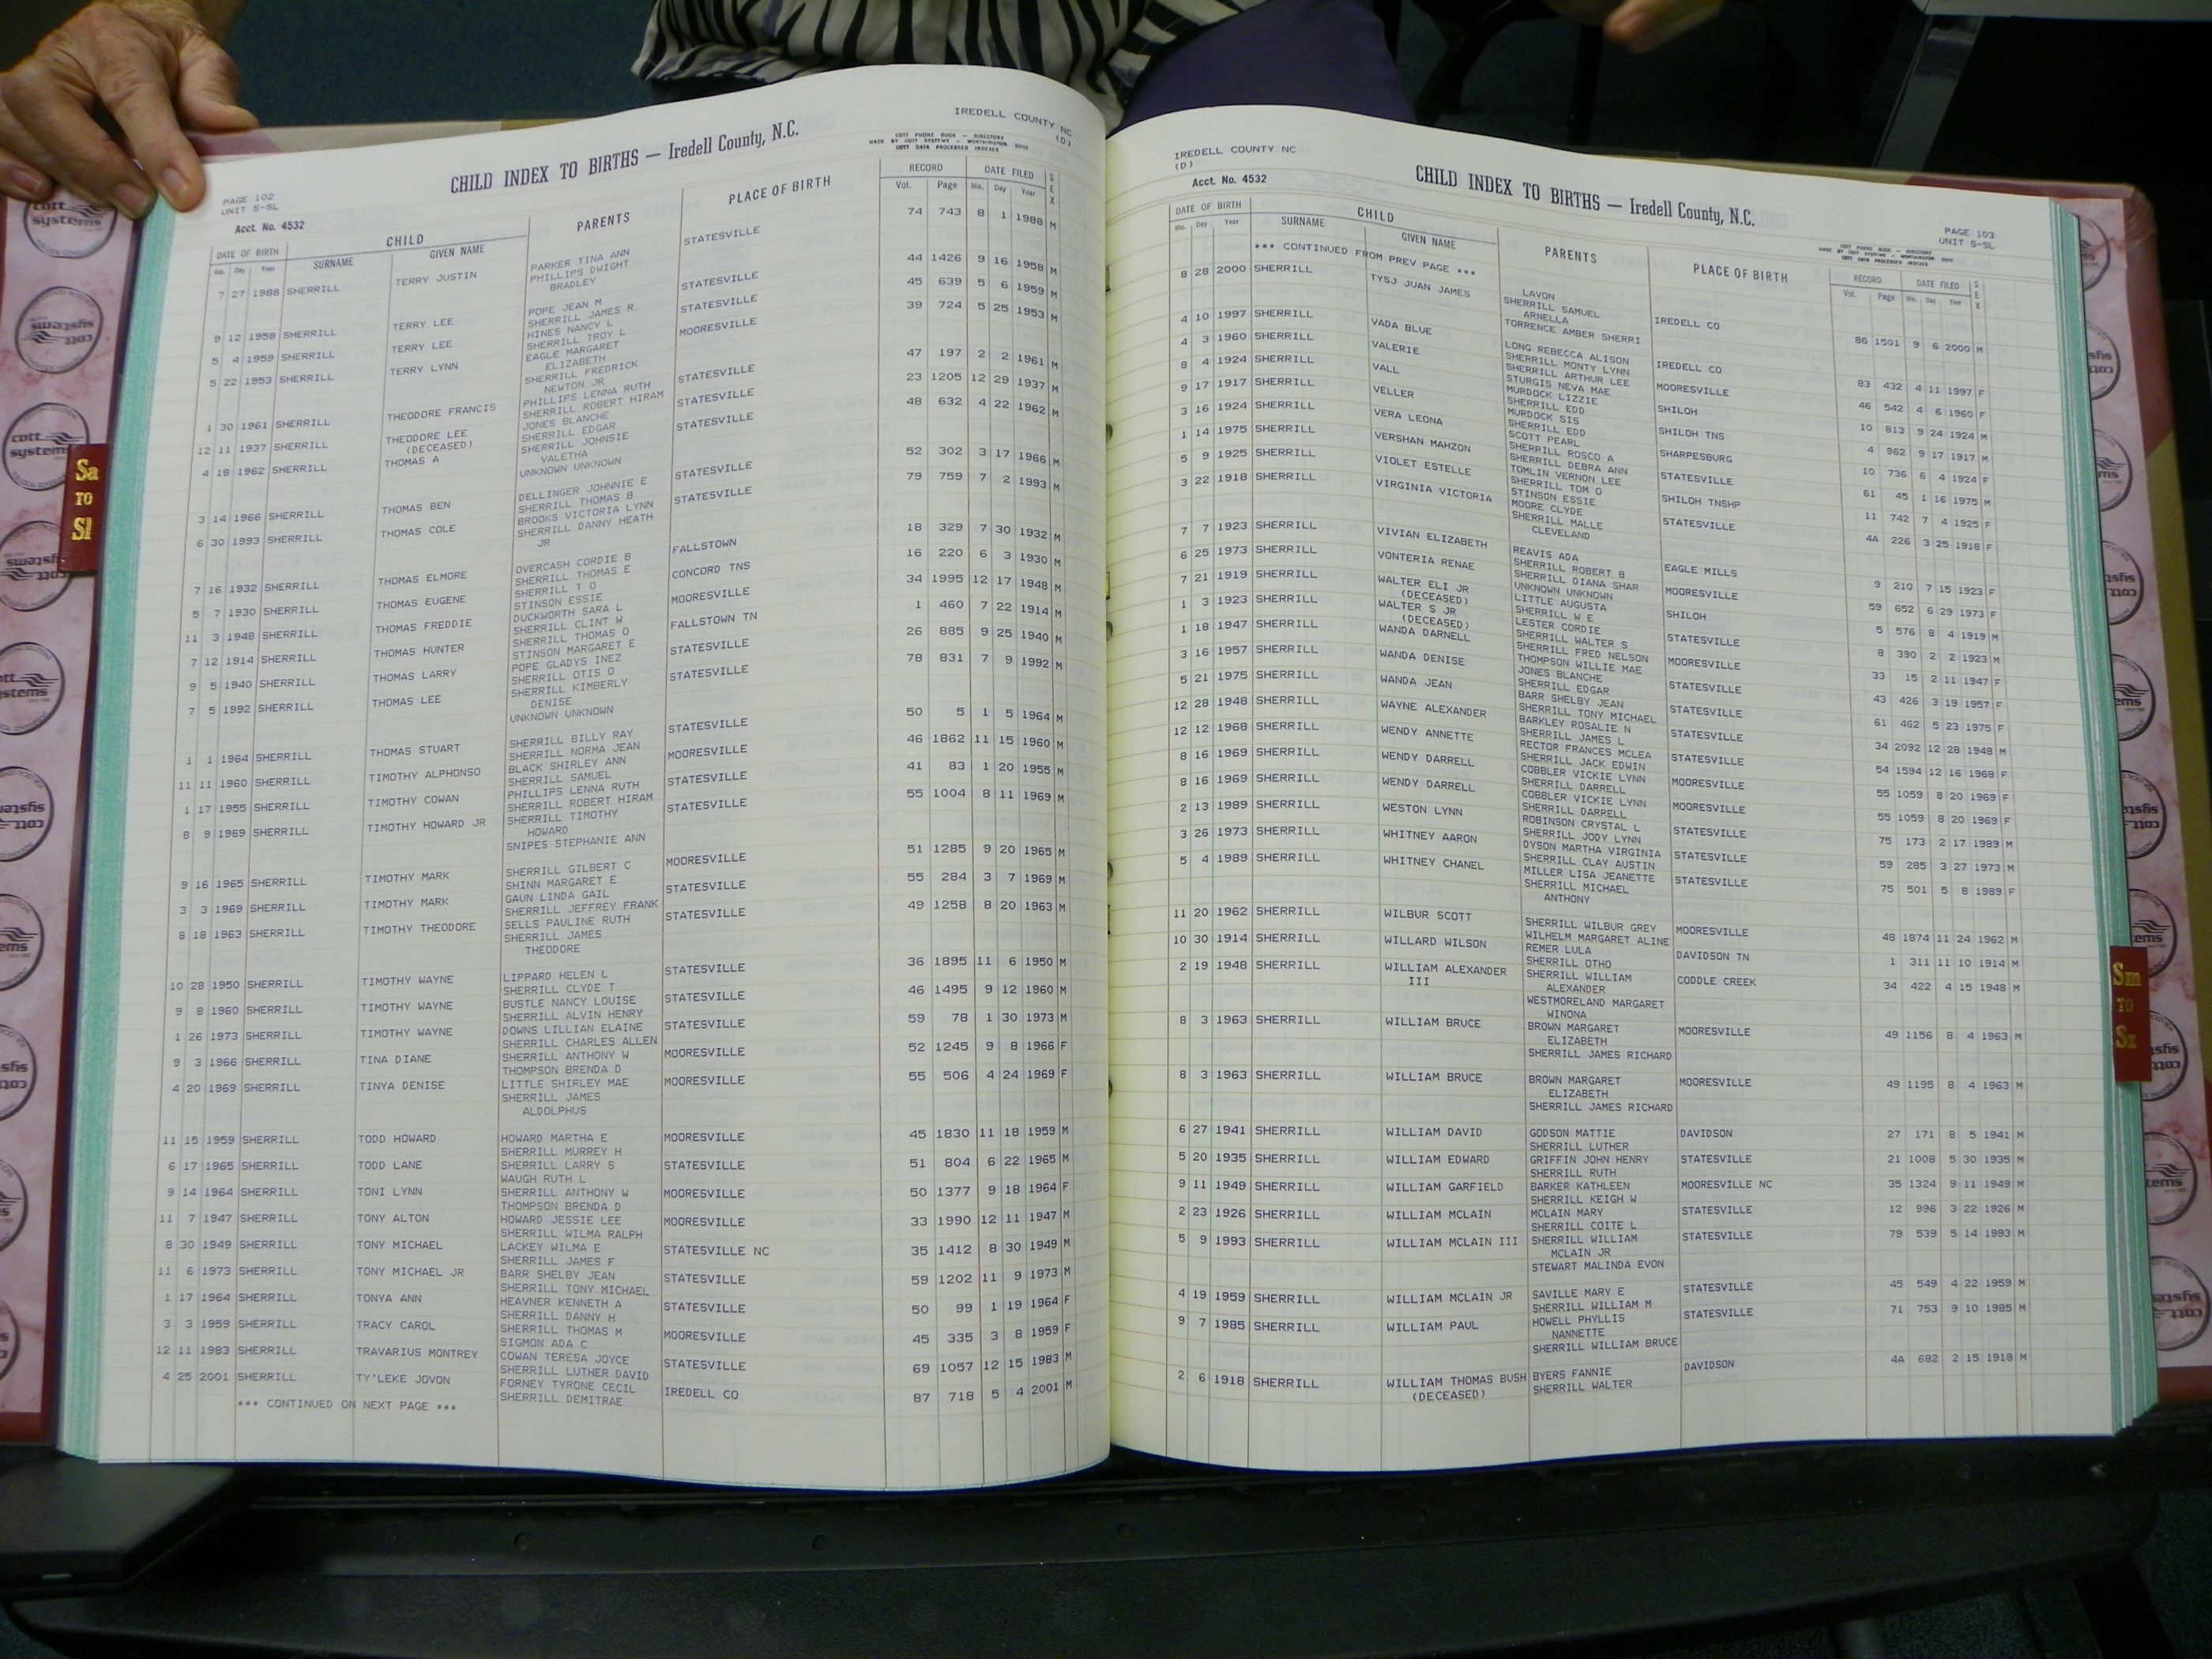 IREDELL COUNTY NC
(D)
CHILD INDEX TO BIRTHS — Iredell County, N.C.
COTT PHONE BOOK — DIRECTORY
MADE BY COTT SYSTEMS — WORTHINGTON OHIO
COTT DATA PROCESSED INDEXES
PAGE 102
UNIT S-SL
Acct. No. 4532
DATE OF BIRTH CHILD PARENTS PLACE OF BIRTH RECORD DATE FILED SEX
Mo. Day Year SURNAME GIVEN NAME Vol. Page Mo. Day Year
7 27 1988 SHERRILL TERRY JUSTIN PARKER TINA ANN STATESVILLE 74 743 8 1 1988 M
PHILLIPS DWIGHT
BRADLEY
9 12 1958 SHERRILL TERRY LEE POPE JEAN M STATESVILLE 44 1426 9 16 1958 M
SHERRILL JAMES R
5 4 1959 SHERRILL TERRY LEE HINES NANCY L STATESVILLE 45 639 5 6 1959 M
SHERRILL TROY L
5 22 1953 SHERRILL TERRY LYNN EAGLE MARGARET MOORESVILLE 39 724 5 25 1953 M
ELIZABETH
SHERRILL FREDRICK
NEWTON JR
1 30 1961 SHERRILL THEODORE FRANCIS PHILLIPS LENNA RUTH STATESVILLE 47 197 2 2 1961 M
SHERRILL ROBERT HIRAM
12 11 1937 SHERRILL THEODORE LEE JONES BLANCHE STATESVILLE 23 1205 12 29 1937 M
(DECEASED) SHERRILL EDGAR
4 18 1962 SHERRILL THOMAS A SHERRILL JOHNSIE STATESVILLE 48 632 4 22 1962 M
VALETHA
UNKNOWN UNKNOWN
3 14 1966 SHERRILL THOMAS BEN DELLINGER JOHNNIE E STATESVILLE 52 302 3 17 1966 M
SHERRILL THOMAS B
6 30 1993 SHERRILL THOMAS COLE BROOKS VICTORIA LYNN STATESVILLE 79 759 7 2 1993 M
SHERRILL DANNY HEATH
JR
7 16 1932 SHERRILL THOMAS ELMORE OVERCASH CORDIE B FALLSTOWN 18 329 7 30 1932 M
SHERRILL THOMAS E
5 7 1930 SHERRILL THOMAS EUGENE SHERRILL T O CONCORD TNS 16 220 6 3 1930 M
STINSON ESSIE
11 3 1948 SHERRILL THOMAS FREDDIE DUCKWORTH SARA L MOORESVILLE 34 1995 12 17 1948 M
SHERRILL CLINT W
7 12 1914 SHERRILL THOMAS HUNTER SHERRILL THOMAS O FALLSTOWN TN 1 460 7 22 1914 M
STINSON MARGARET E
9 5 1940 SHERRILL THOMAS LARRY POPE GLADYS INEZ STATESVILLE 26 885 9 25 1940 M
SHERRILL OTIS O
7 5 1992 SHERRILL THOMAS LEE SHERRILL KIMBERLY STATESVILLE 78 831 7 9 1992 M
DENISE
UNKNOWN UNKNOWN
1 1 1964 SHERRILL THOMAS STUART SHERRILL BILLY RAY STATESVILLE 50 5 1 5 1964 M
SHERRILL NORMA JEAN
11 11 1960 SHERRILL TIMOTHY ALPHONSO BLACK SHIRLEY ANN MOORESVILLE 46 1862 11 15 1960 M
SHERRILL SAMUEL
1 17 1955 SHERRILL TIMOTHY COWAN PHILLIPS LENNA RUTH STATESVILLE 41 83 1 20 1955 M
SHERRILL ROBERT HIRAM
8 9 1969 SHERRILL TIMOTHY HOWARD JR SHERRILL TIMOTHY STATESVILLE 55 1004 8 11 1969 M
HOWARD
SNIPES STEPHANIE ANN
9 16 1965 SHERRILL TIMOTHY MARK SHERRILL GILBERT C MOORESVILLE 51 1285 9 20 1965 M
SHINN MARGARET E
3 3 1969 SHERRILL TIMOTHY MARK GAUN LINDA GAIL STATESVILLE 55 284 3 7 1969 M
SHERRILL JEFFREY FRANK
8 18 1963 SHERRILL TIMOTHY THEODORE SELLS PAULINE RUTH STATESVILLE 49 1258 8 20 1963 M
SHERRILL JAMES
THEODORE
10 28 1950 SHERRILL TIMOTHY WAYNE LIPPARD HELEN L STATESVILLE 36 1895 11 6 1950 M
SHERRILL CLYDE T
9 8 1960 SHERRILL TIMOTHY WAYNE BUSTLE NANCY LOUISE STATESVILLE 46 1495 9 12 1960 M
SHERRILL ALVIN HENRY
1 26 1973 SHERRILL TIMOTHY WAYNE DOWNS LILLIAN ELAINE STATESVILLE 59 78 1 30 1973 M
SHERRILL CHARLES ALLEN
9 3 1966 SHERRILL TINA DIANE SHERRILL ANTHONY W MOORESVILLE 52 1245 9 8 1966 F
THOMPSON BRENDA D
4 20 1969 SHERRILL TINYA DENISE LITTLE SHIRLEY MAE MOORESVILLE 55 506 4 24 1969 F
SHERRILL JAMES
ALDOLPHUS
11 15 1959 SHERRILL TODD HOWARD HOWARD MARTHA E MOORESVILLE 45 1830 11 18 1959 M
SHERRILL MURREY H
6 17 1965 SHERRILL TODD LANE SHERRILL LARRY S STATESVILLE 51 804 6 22 1965 M
WAUGH RUTH L
9 14 1964 SHERRILL TONI LYNN SHERRILL ANTHONY W MOORESVILLE 50 1377 9 18 1964 F
THOMPSON BRENDA D
11 7 1947 SHERRILL TONY ALTON HOWARD JESSIE LEE MOORESVILLE 33 1990 12 11 1947 M
SHERRILL WILMA RALPH
8 30 1949 SHERRILL TONY MICHAEL LACKEY WILMA E STATESVILLE NC 35 1412 8 30 1949 M
SHERRILL JAMES F
11 6 1973 SHERRILL TONY MICHAEL JR BARR SHELBY JEAN STATESVILLE 59 1202 11 9 1973 M
SHERRILL TONY MICHAEL
1 17 1964 SHERRILL TONYA ANN HEAVNER KENNETH A STATESVILLE 50 99 1 19 1964 F
SHERRILL DANNY H
3 3 1959 SHERRILL TRACY CAROL SHERRILL THOMAS M MOORESVILLE 45 335 3 8 1959 F
SIGMON ADA C
12 11 1983 SHERRILL TRAVARIUS MONTREY COWAN TERESA JOYCE STATESVILLE 69 1057 12 15 1983 M
SHERRILL LUTHER DAVID
4 25 2001 SHERRILL TY'LEKE JOVON FORNEY TYRONE CECIL IREDELL CO 87 718 5 4 2001 M
SHERRILL DEMITRAE
*** CONTINUED ON NEXT PAGE ***
IREDELL COUNTY NC
(D)
Acct. No. 4532
CHILD INDEX TO BIRTHS — Iredell County, N.C.
PAGE 103
UNIT S-SL
COTT PHONE BOOK — DIRECTORY
MADE BY COTT SYSTEMS — WORTHINGTON OHIO
COTT DATA PROCESSED INDEXES
DATE OF BIRTH CHILD PARENTS PLACE OF BIRTH RECORD DATE FILED SEX
Mo. Day Year SURNAME GIVEN NAME Vol. Page Mo. Day Year
*** CONTINUED FROM PREV PAGE ***
LAVON
8 28 2000 SHERRILL TYSJ JUAN JAMES SHERRILL SAMUEL IREDELL CO 86 1501 9 6 2000 M
ARNELLA
TORRENCE AMBER SHERRI
4 10 1997 SHERRILL VADA BLUE LONG REBECCA ALISON IREDELL CO 83 432 4 11 1997 F
SHERRILL MONTY LYNN
4 3 1960 SHERRILL VALERIE SHERRILL ARTHUR LEE MOORESVILLE 46 542 4 6 1960 F
STURGIS NEVA MAE
8 4 1924 SHERRILL VALL MURDOCK LIZZIE SHILOH 10 813 9 24 1924 M
SHERRILL EDD
9 17 1917 SHERRILL VELLER MURDOCK SIS SHILOH TNS 4 962 9 17 1917 M
SHERRILL EDD
3 16 1924 SHERRILL VERA LEONA SCOTT PEARL SHARPESBURG 10 736 6 4 1924 F
SHERRILL ROSCO A
1 14 1975 SHERRILL VERSHAN MAHZON SHERRILL DEBRA ANN STATESVILLE 61 45 1 16 1975 M
TOMLIN VERNON LEE
5 9 1925 SHERRILL VIOLET ESTELLE SHERRILL TOM O SHILOH TNSHP 11 742 7 4 1925 F
STINSON ESSIE
3 22 1918 SHERRILL VIRGINIA VICTORIA MOORE CLYDE STATESVILLE 4A 226 3 25 1918 F
SHERRILL MALLE
CLEVELAND
7 7 1923 SHERRILL VIVIAN ELIZABETH REAVIS ADA EAGLE MILLS 9 210 7 15 1923 F
SHERRILL ROBERT B
6 25 1973 SHERRILL VONTERIA RENAE SHERRILL DIANA SHAR MOORESVILLE 59 652 6 29 1973 F
UNKNOWN UNKNOWN
7 21 1919 SHERRILL WALTER ELI JR LITTLE AUGUSTA SHILOH 5 576 8 4 1919 M
(DECEASED) SHERRILL W E
1 3 1923 SHERRILL WALTER S JR LESTER CORDIE STATESVILLE 8 390 2 2 1923 M
(DECEASED) SHERRILL WALTER S
1 18 1947 SHERRILL WANDA DARNELL SHERRILL FRED NELSON MOORESVILLE 33 15 2 11 1947 F
THOMPSON WILLIE MAE
3 16 1957 SHERRILL WANDA DENISE JONES BLANCHE STATESVILLE 43 426 3 19 1957 F
SHERRILL EDGAR
5 21 1975 SHERRILL WANDA JEAN BARR SHELBY JEAN STATESVILLE 61 462 5 23 1975 F
SHERRILL TONY MICHAEL
12 28 1948 SHERRILL WAYNE ALEXANDER BARKLEY ROSALIE N STATESVILLE 34 2092 12 28 1948 M
SHERRILL JAMES L
12 12 1968 SHERRILL WENDY ANNETTE RECTOR FRANCES MCLEA STATESVILLE 54 1594 12 16 1968 F
SHERRILL JACK EDWIN
8 16 1969 SHERRILL WENDY DARRELL COBBLER VICKIE LYNN MOORESVILLE 55 1059 8 20 1969 F
SHERRILL DARRELL
8 16 1969 SHERRILL WENDY DARRELL COBBLER VICKIE LYNN MOORESVILLE 55 1059 8 20 1969 F
SHERRILL DARRELL
2 13 1989 SHERRILL WESTON LYNN ROBINSON CRYSTAL L STATESVILLE 75 173 2 17 1989 M
SHERRILL JODY LYNN
3 26 1973 SHERRILL WHITNEY AARON DYSON MARTHA VIRGINIA STATESVILLE 59 285 3 27 1973 M
SHERRILL CLAY AUSTIN
5 4 1989 SHERRILL WHITNEY CHANEL MILLER LISA JEANETTE STATESVILLE 75 501 5 8 1989 F
SHERRILL MICHAEL
ANTHONY
11 20 1962 SHERRILL WILBUR SCOTT SHERRILL WILBUR GREY MOORESVILLE 48 1874 11 24 1962 M
WILHELM MARGARET ALINE
10 30 1914 SHERRILL WILLARD WILSON REMER LULA DAVIDSON TN 1 311 11 10 1914 M
SHERRILL OTHO
2 19 1948 SHERRILL WILLIAM ALEXANDER SHERRILL WILLIAM CODDLE CREEK 34 422 4 15 1948 M
III ALEXANDER
WESTMORELAND MARGARET
WINONA
8 3 1963 SHERRILL WILLIAM BRUCE BROWN MARGARET MOORESVILLE 49 1156 8 4 1963 M
ELIZABETH
SHERRILL JAMES RICHARD
8 3 1963 SHERRILL WILLIAM BRUCE BROWN MARGARET MOORESVILLE 49 1195 8 4 1963 M
ELIZABETH
SHERRILL JAMES RICHARD
6 27 1941 SHERRILL WILLIAM DAVID GODSON MATTIE DAVIDSON 27 171 8 5 1941 M
SHERRILL LUTHER
5 20 1935 SHERRILL WILLIAM EDWARD GRIFFIN JOHN HENRY STATESVILLE 21 1008 5 30 1935 M
SHERRILL RUTH
9 11 1949 SHERRILL WILLIAM GARFIELD BARKER KATHLEEN MOORESVILLE NC 35 1324 9 11 1949 M
SHERRILL KEIGH W
2 23 1926 SHERRILL WILLIAM MCLAIN MCLAIN MARY STATESVILLE 12 996 3 22 1926 M
SHERRILL COITE L
5 9 1993 SHERRILL WILLIAM MCLAIN III SHERRILL WILLIAM STATESVILLE 79 539 5 14 1993 M
MCLAIN JR
STEWART MALINDA EVON
4 19 1959 SHERRILL WILLIAM MCLAIN JR SAVILLE MARY E STATESVILLE 45 549 4 22 1959 M
SHERRILL WILLIAM M
9 7 1985 SHERRILL WILLIAM PAUL HOWELL PHYLLIS STATESVILLE 71 753 9 10 1985 M
NANNETTE
SHERRILL WILLIAM BRUCE
2 6 1918 SHERRILL WILLIAM THOMAS BUSH BYERS FANNIE DAVIDSON 4A 682 2 15 1918 M
(DECEASED) SHERRILL WALTER
Sa
TO
Sl
Sm
TO
Sz
cott
systems